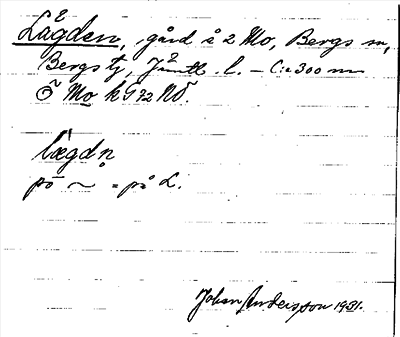 Lägden, gård å 2 Mo, Bergs sn,
Bergs tj, Jämtl. l. – C:a 300 m
Ö Mo kG 72 NV.
lægdn̥
på ~ = på L.
Johan Andersson 1931.